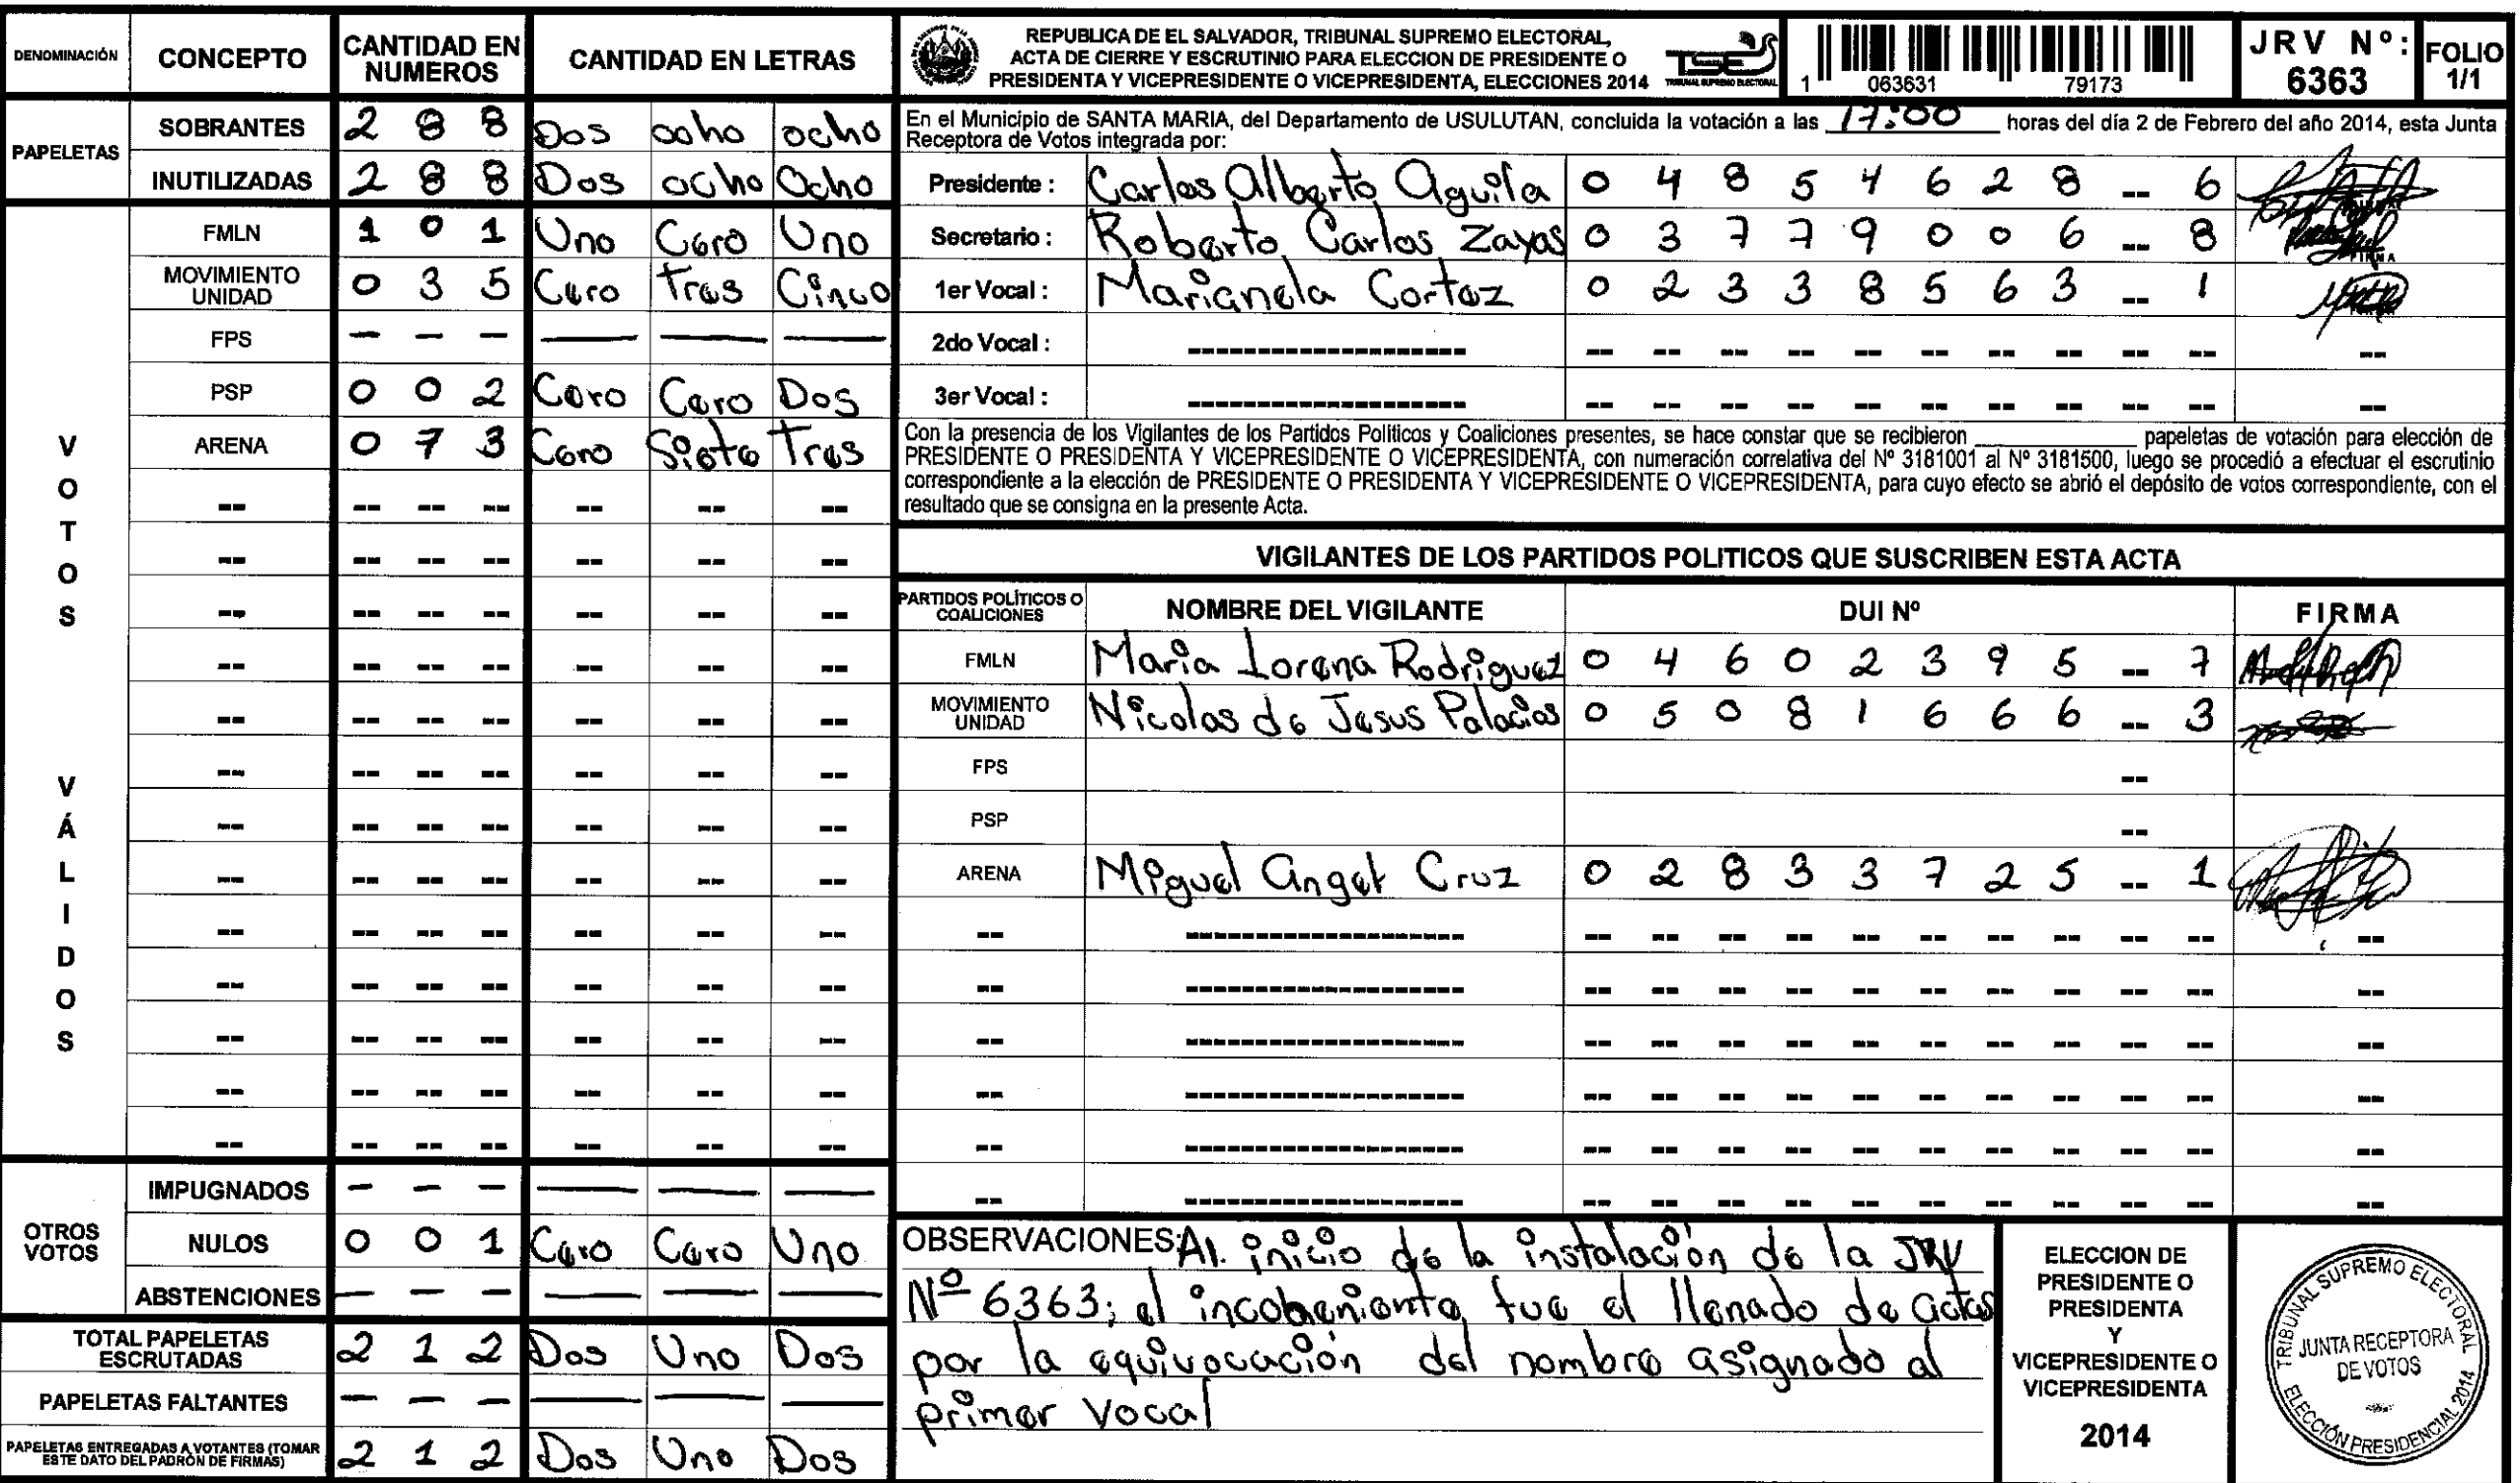 DENOMINACIÓN CONCEPTO CANTIDAD EN NUMEROS CANTIDAD EN LETRAS
PAPELETAS
SOBRANTES 2 8 8 Dos ocho ocho
INUTILIZADAS 2 8 8 Dos ocho Ocho
VOTOS VÁLIDOS
FMLN 1 0 1 Uno Cero Uno
MOVIMIENTO UNIDAD 0 3 5 Cero Tres Cinco
FPS — — — — — —
PSP 0 0 2 Cero Cero Dos
ARENA 0 7 3 Cero Siete Tres
OTROS VOTOS
IMPUGNADOS — — — — — —
NULOS 0 0 1 Cero Cero Uno
ABSTENCIONES — — — — — —
TOTAL PAPELETAS ESCRUTADAS 2 1 2 Dos Uno Dos
PAPELETAS FALTANTES — — — — — —
PAPELETAS ENTREGADAS A VOTANTES (TOMAR ESTE DATO DEL PADRÓN DE FIRMAS) 2 1 2 Dos Uno Dos
REPUBLICA DE EL SALVADOR, TRIBUNAL SUPREMO ELECTORAL,
ACTA DE CIERRE Y ESCRUTINIO PARA ELECCION DE PRESIDENTE O
PRESIDENTA Y VICEPRESIDENTE O VICEPRESIDENTA, ELECCIONES 2014
TSE
TRIBUNAL SUPREMO ELECTORAL
1 063631 79173
JRV Nº: 6363
FOLIO 1/1
En el Municipio de SANTA MARIA, del Departamento de USULUTAN, concluida la votación a las 17:00 horas del día 2 de Febrero del año 2014, esta Junta
Receptora de Votos integrada por:
Presidente : Carlos Alberto Aguila 0 4 8 5 4 6 2 8 -- 6
Secretario : Roberto Carlos Zayas 0 3 7 7 9 0 0 6 -- 8
FIRMA
1er Vocal : Marianela Cortez 0 2 3 3 8 5 6 3 -- 1
2do Vocal :
3er Vocal :
Con la presencia de los Vigilantes de los Partidos Politicos y Coaliciones presentes, se hace constar que se recibieron ________ papeletas de votación para elección de
PRESIDENTE O PRESIDENTA Y VICEPRESIDENTE O VICEPRESIDENTA, con numeración correlativa del Nº 3181001 al Nº 3181500, luego se procedió a efectuar el escrutinio
correspondiente a la elección de PRESIDENTE O PRESIDENTA Y VICEPRESIDENTE O VICEPRESIDENTA, para cuyo efecto se abrió el depósito de votos correspondiente, con el
resultado que se consigna en la presente Acta.
VIGILANTES DE LOS PARTIDOS POLITICOS QUE SUSCRIBEN ESTA ACTA
PARTIDOS POLÍTICOS O COALICIONES NOMBRE DEL VIGILANTE DUI Nº FIRMA
FMLN Maria Lorena Rodriguez 0 4 6 0 2 3 9 5 -- 7
MOVIMIENTO UNIDAD Nicolas de Jesus Palacios 0 5 0 8 1 6 6 6 -- 3
FPS --
PSP --
ARENA Miguel Angel Cruz 0 2 8 3 3 7 2 5 -- 1
OBSERVACIONES: Al. inicio de la instalación de la JRV
Nº 6363; el incobeniente fue el llenado de actas
por la equivocación del nombre asignado al
primer vocal
ELECCION DE
PRESIDENTE O
PRESIDENTA
Y
VICEPRESIDENTE O
VICEPRESIDENTA
2014
TRIBUNAL SUPREMO ELECTORAL
JUNTA RECEPTORA
DE VOTOS
ELECCIÓN PRESIDENCIAL 2014